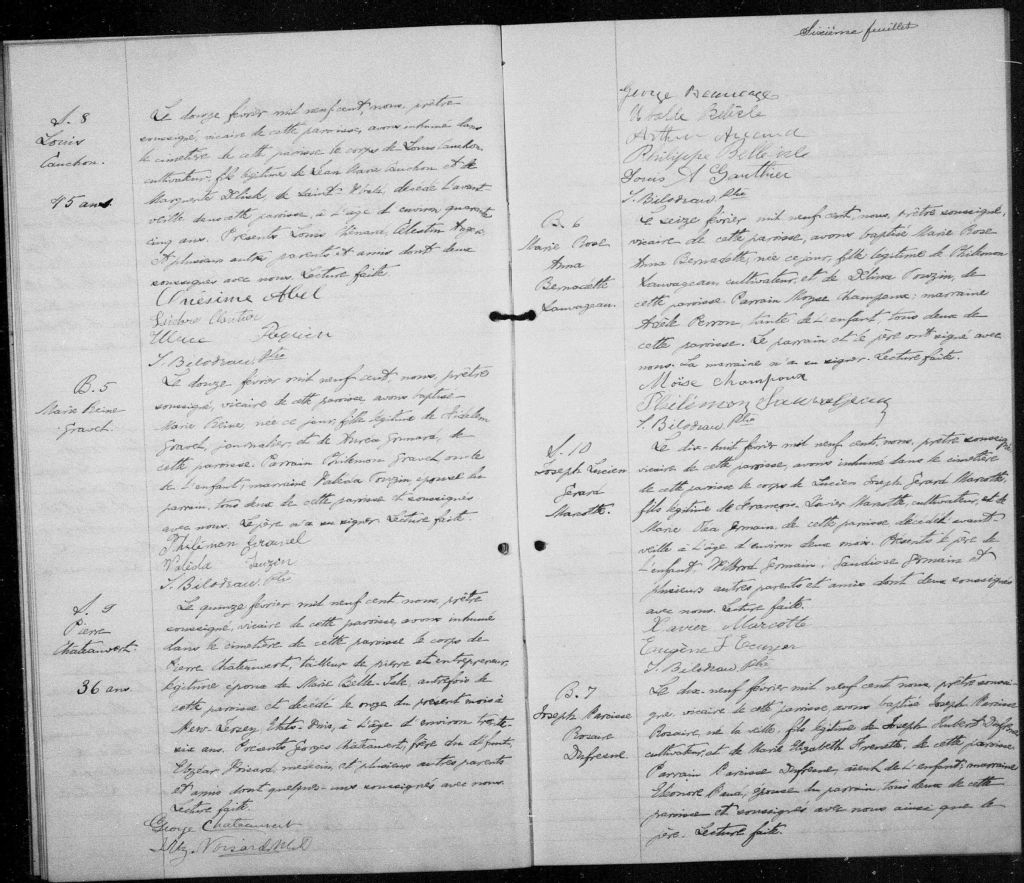 S. 8
Louis
Cauchon.
45 ans.
Le douze février mil neuf cent, nous, prêtre
soussigné, vicaire de cette paroisse, avons inhumé dans
le cimetière de cette paroisse le corps de Louis Cauchon,
cultivateur, fils légitime de Jean Marie Cauchon et de
Marguerite de Saint décédé l'avant
veille dans cette paroisse, à l'âge d'environ quarante
cinq ans. Présents Louis Célestin
et plusieurs autres parents et amis dont deux
soussignés avec nous. Lecture faite
Onésime Abel
Cloutier
J. Bilodeau Ptre
B. 5
Marie Reine
Gravel.
Le douze février mil neuf cent, nous, prêtre
soussigné, vicaire de cette paroisse, avons baptisé
Marie Reine, née ce jour, fille légitime de
Gravel, journalier, et de de
cette paroisse. Parrain Philémon Gravel oncle
de l'enfant; marraine Valéda Lauzon épouse du
parrain, tous deux de cette paroisse et soussignés
avec nous. Le père n'a su signer. Lecture faite.
Philémon Gravel
Valéda Lauzon
J. Bilodeau Ptre
S. 9
Pierre
Chateauvert.
36 ans
Le quinze février mil neuf cent, nous, prêtre
soussigné, vicaire de cette paroisse, avons inhumé
dans le cimetière de cette paroisse le corps de
Pierre Chateauvert, tailleur de pierre et entrepreneur,
légitime époux de Marie Belle-Isle, autrefois de
cette paroisse et décédé le onze du présent mois à
New Jersey, Etats-Unis, à l'âge d'environ trente
six ans. Présents Georges Chateauvert, frère du défunt,
Elzéar médecin, et plusieurs autres parents
et amis dont quelques-uns soussignés avec nous.
Lecture faite
George Chateauvert
Elz. M.D.
Sixième feuillet
George Beaucage
Ubalde Bélisle
Arthur
Philippe Belleisle
Louis A Gauthier
J. Bilodeau Ptre
B. 6
Marie Rose
Anna
Bernadette
Sauvageau.
Le seize février mil neuf cent, nous, prêtre soussigné,
vicaire de cette paroisse, avons baptisé Marie Rose
Anna Bernadette, née ce jour, fille légitime de Philémon
Sauvageau, cultivateur, et de Délima de
cette paroisse. Parrain Moyse Champoux; marraine
Adèle Perron, tante de l'enfant, tous deux de
cette paroisse. Le parrain et le père ont signé avec
nous. La marraine n'a su signer. Lecture faite.
Moïse Champoux
Philémon Sauvageau
J. Bilodeau Ptre
S. 10
Joseph Lucien
Gérard
Marcotte.
Le dix-huit février mil neuf cent, nous, prêtre soussigné
vicaire de cette paroisse, avons inhumé dans le cimetière
de cette paroisse le corps de Lucien Joseph Gérard Marcotte,
fils légitime de François-Xavier Marcotte, cultivateur, et de
Marie Germain, de cette paroisse décédé avant-
veille à l'âge d'environ deux mois. Présents le père de
l'enfant, Germain, Germain et
plusieurs autres parents et amis dont deux soussignés
avec nous. Lecture faite.
Xavier Marcotte
Eugène J Ecuyer
J. Bilodeau Ptre
B. 7
Joseph Narcisse
Rosaire
Dufresne
Le dix-neuf février mil neuf cent nous, prêtre soussi-
gné, vicaire de cette paroisse, avons baptisé Joseph Narcisse
Rosaire, né la veille, fils légitime de Joseph Hubert Dufresne
cultivateur, et de Marie Elizabeth Frenette, de cette paroisse.
Parrain Narcisse Dufresne, aïeul de l'enfant; marraine
Eléonore épouse du parrain, tous deux de cette
paroisse et soussignés avec nous ainsi que le
père. Lecture faite.